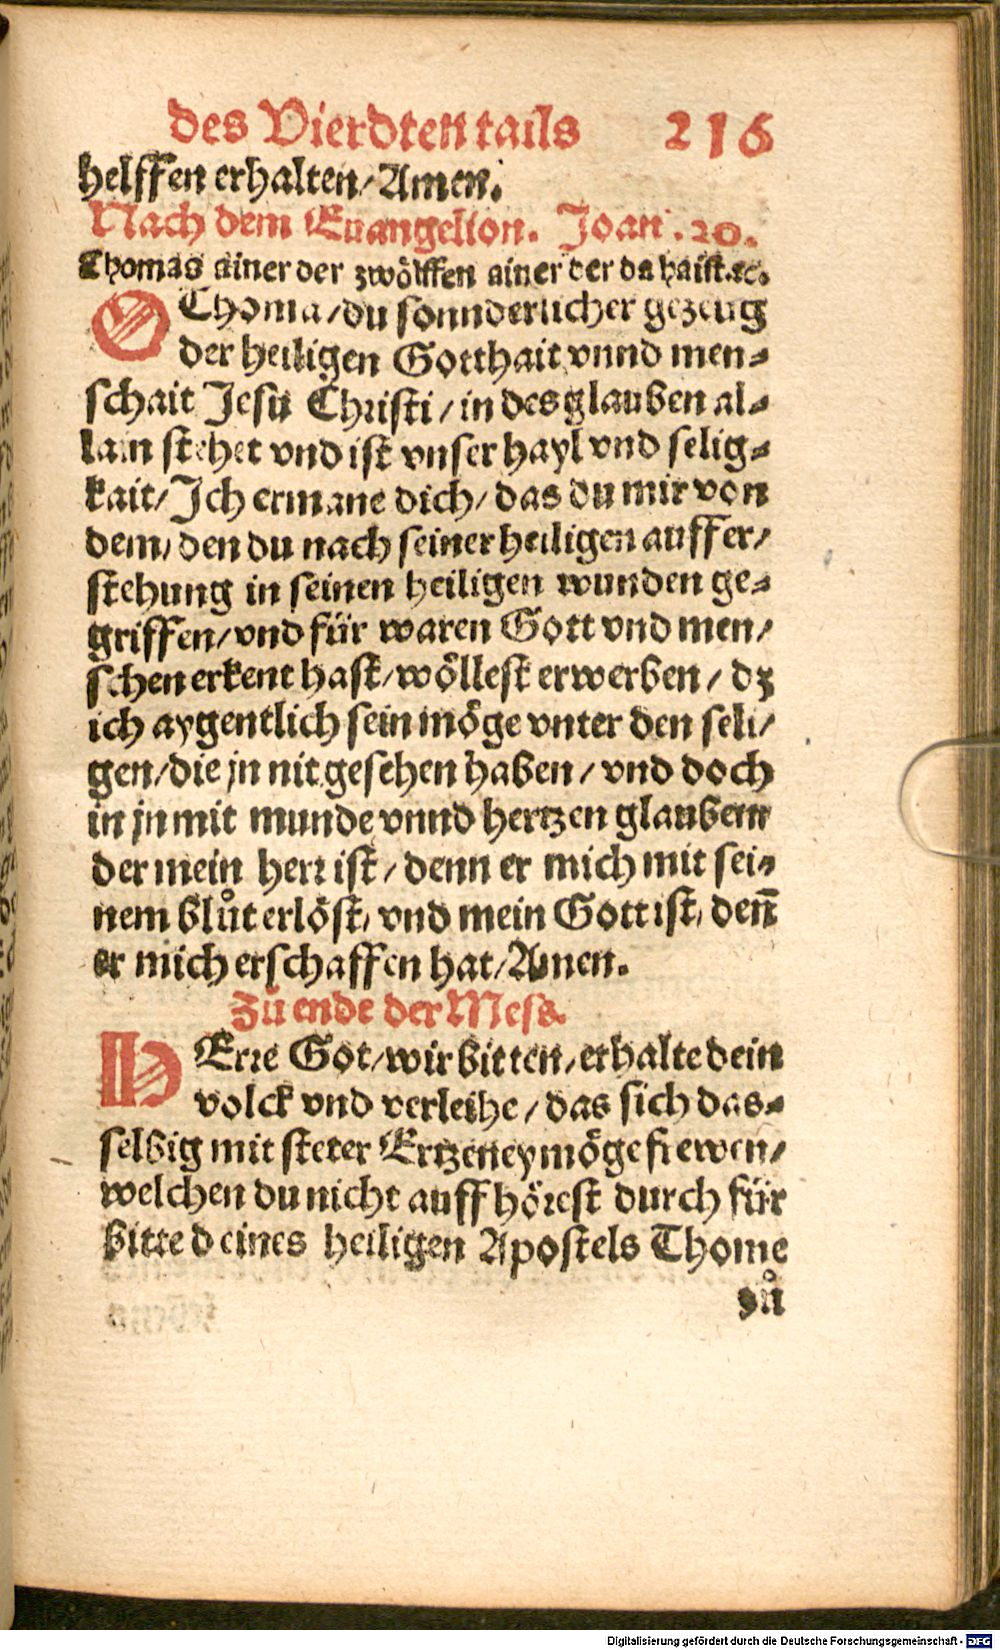 des Vierdten tails 216
helffen erhalten/Amen.
Nach dem Euangelion. Joan. 20.
Thomas ainer der zwölffen ainer der da haist.ꝛc.
O Thoma/du sonnderlicher gezeug
der heiligen Gotthait vnnd men-
schait Jesu Christi/in des glauben al-
lain stehet vnd ist vnser hayl vnd selig-
kait/Ich ermane dich/das du mir von
dem/den du nach seiner heiligen auffer/
stehung in seinen heiligen wunden ge-
griffen/vnd für waren Gott vnd men/
schen erkent hast/wöllest erwerben/dz
ich aygentlich sein möge vnter den seli/
gen/die jn nit gesehen haben/vnd doch
in jn mit munde vnnd hertzen glauben
der mein herr ist/denn er mich mit sei-
nem blůt erlöst/vnd mein Gott ist/deñ
er mich erschaffen hat/Amen.
Zů ende der Mess.
HErre Got/wir bitten/erhalte dein
volck vnd verleihe/das sich das-
selbig mit steter Ertzeney möge frewen/
welchen du nicht auff hörest durch für
bitte deines heiligen Apostels Thome
zů
Digitalisierung gefördert durch die Deutsche Forschungsgemeinschaft - DFG